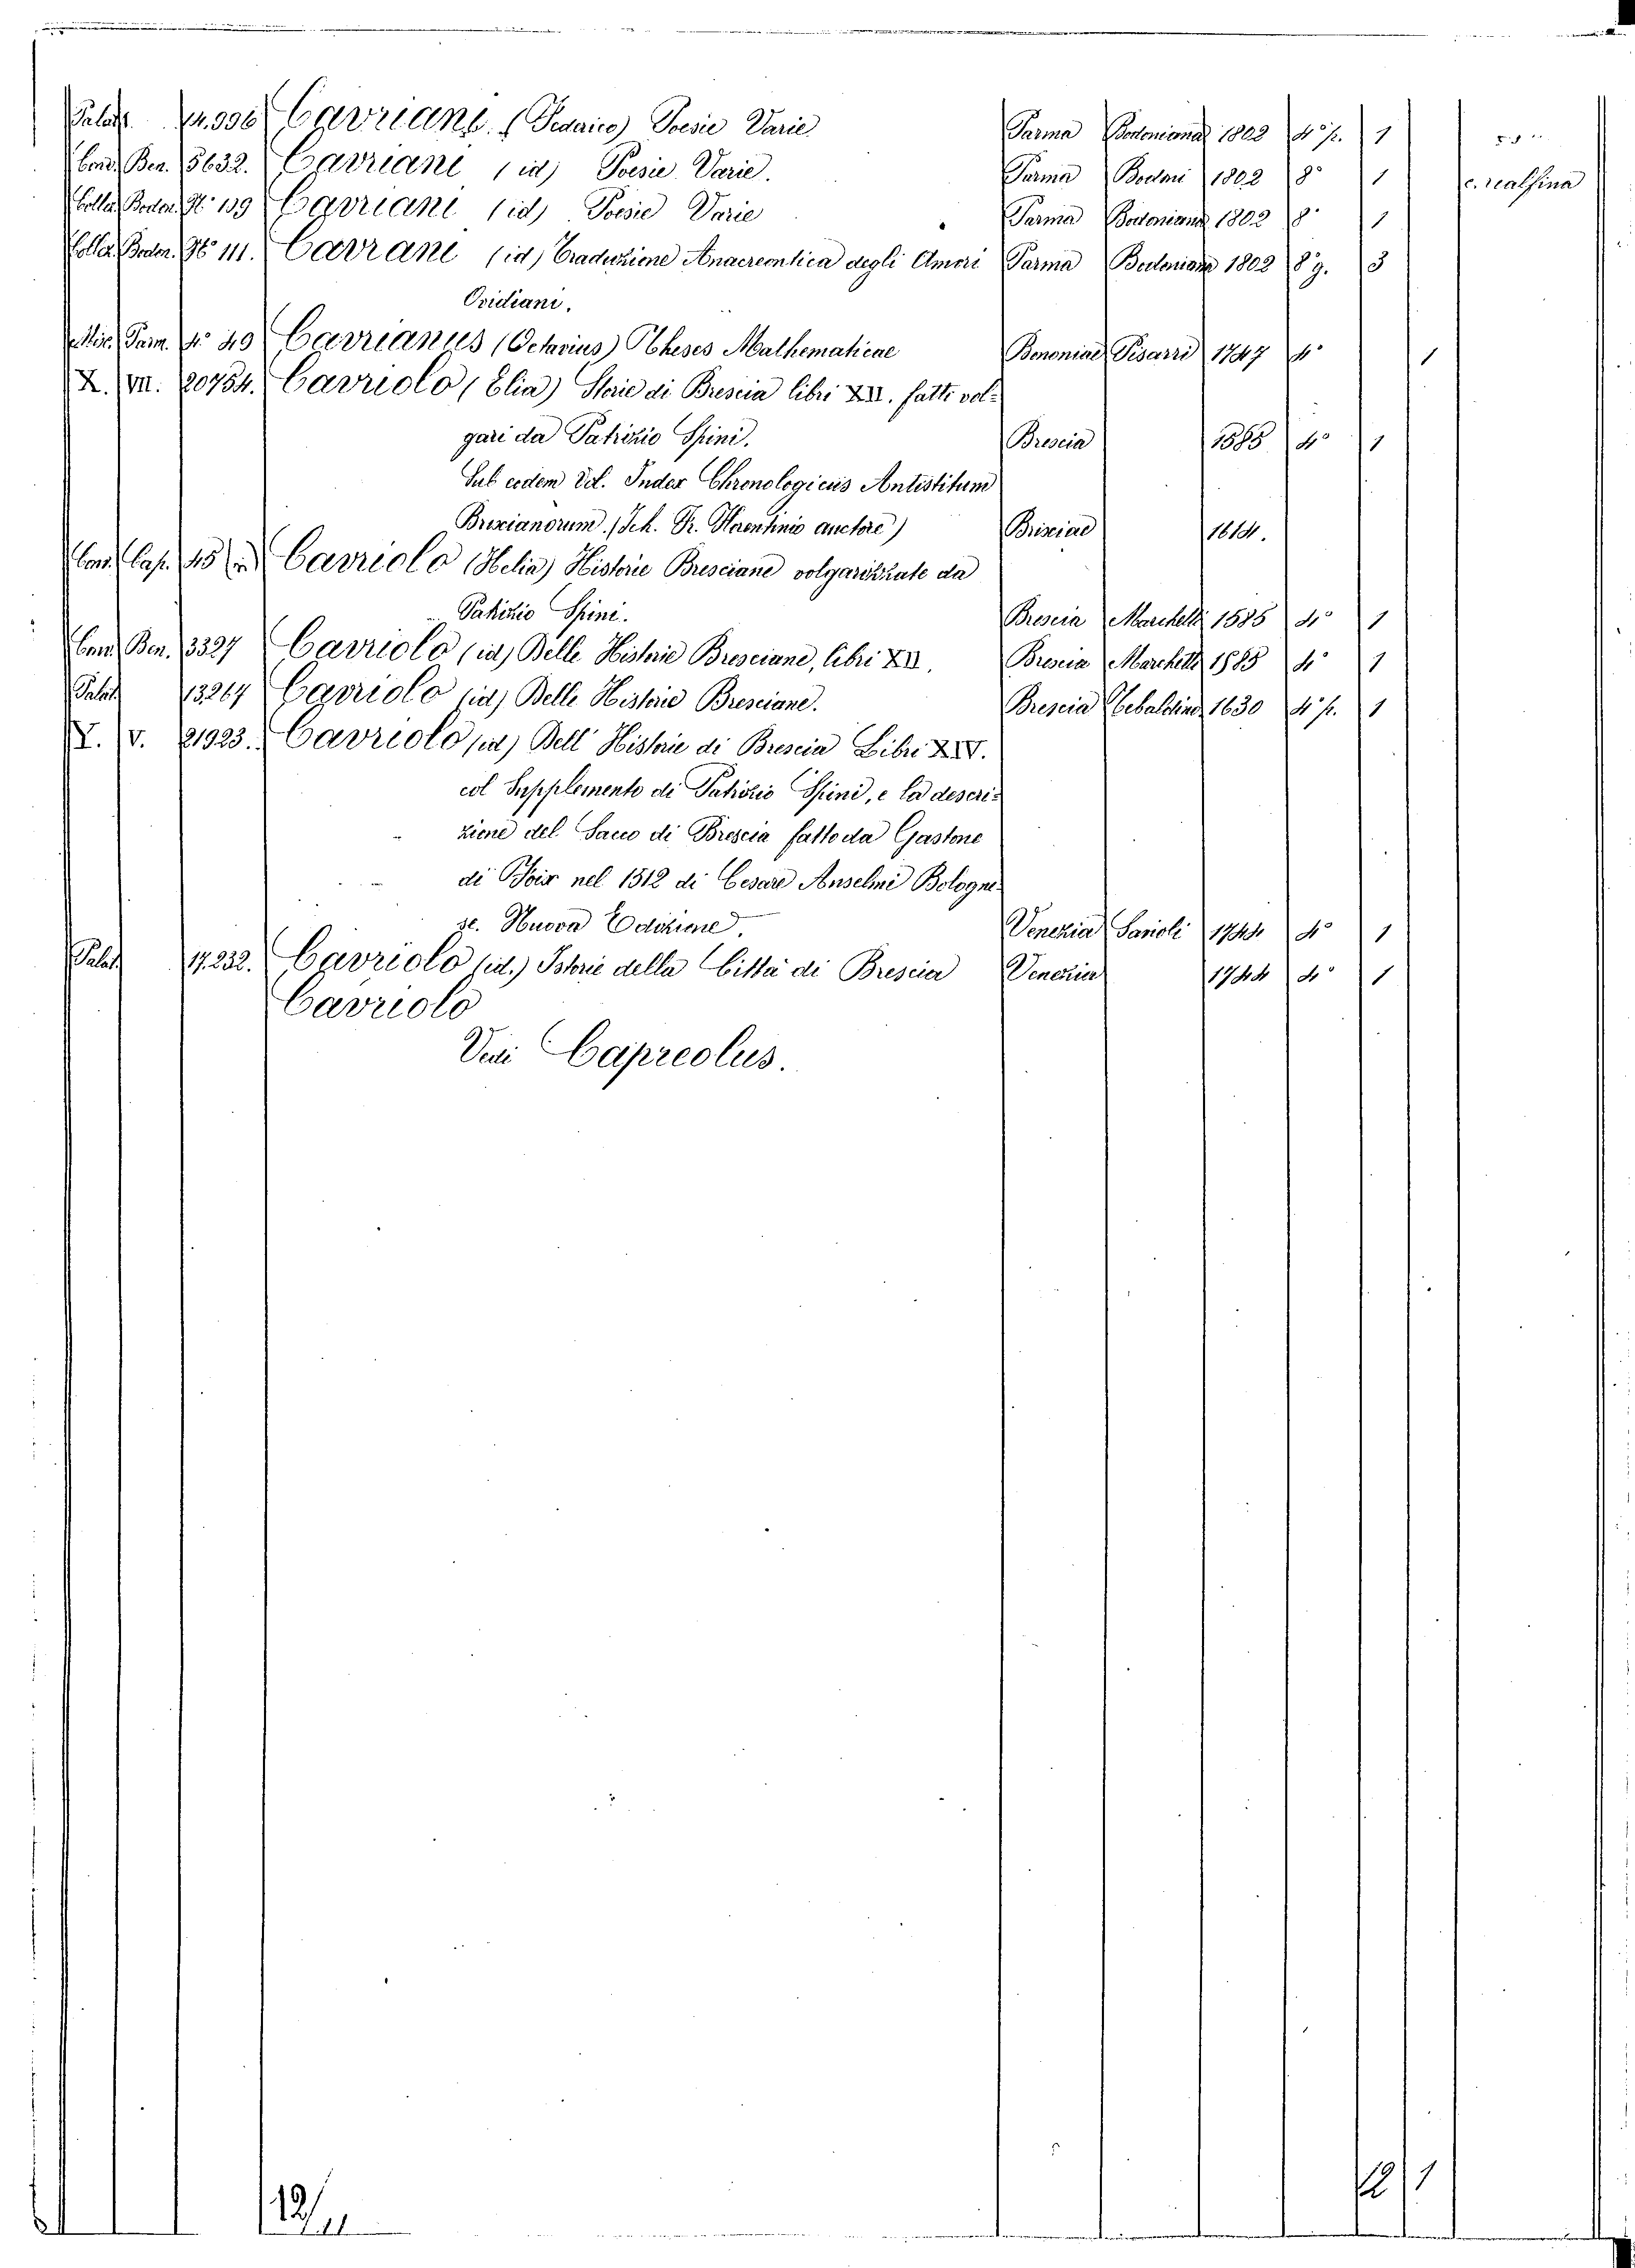 Palat. 14.996 Cavriani (Federico) Poesie Varie Parma Bodoniana 1802 4° p. 1
Cond. Ben. 5632. Cavriani (id) Poesie Varie. Parma Bodoni 1802 8° 1
Collez. Bodon. N° 139 Cavriani (id) Poesie Varie Parma Bodoniana 1802 8° 1
Collez. Bodon. N° 111. Cavriani (id) Traduzione Anacreontica degli Amori Parma Bodoniana 1802 8° g. 3
Ovidiani.
Misc. Parm. 4° 49 Cavrianus (Octavius) Theses Mathematicae Bononiae Pisarri 1747 4° 1
X. VII. 20754. Cavriolo (Elia) Storie di Brescia libri XII. fatti vol=
gari da Patrizio Spini. Brescia 1585 4° 1
Sub eodem Vol. Index Chronologicus Antistitum
Brixianorum (Joh. Fr. Florentinio auctore) Brixiae 1614.
Cond. Cap. 45 Cavriolo (Helia) Historie Bresciane volgarizzate da
Patrizio Spini. Brescia Marchetti 1585 4° 1
Cond. Ben. 3327 Cavriolo (id) Delle Historie Bresciane, libri XII. Brescia Marchetti 1585 4° 1
Palat. 13267 Cavriolo (id) Delle Historie Bresciane. Brescia Tebaldino 1630 4° p. 1
V. 21923. Cavriolo (id) Dell' Historie di Brescia Libri XIV.
col Supplemento di Patrizio Spini, e la descri=
zione del Sacco di Brescia fatto da Gastone
di Foix nel 1512 di Cesare Anselmi Bologne=
se. Nuova Edizione. Venezia Savioli 1744 4° 1
Palat. 17.232. Cavriolo (id.) Istorie della Città di Brescia Venezia 1744 4° 1
Cavriolo
Vedi Capreolus.
12/1
12/11